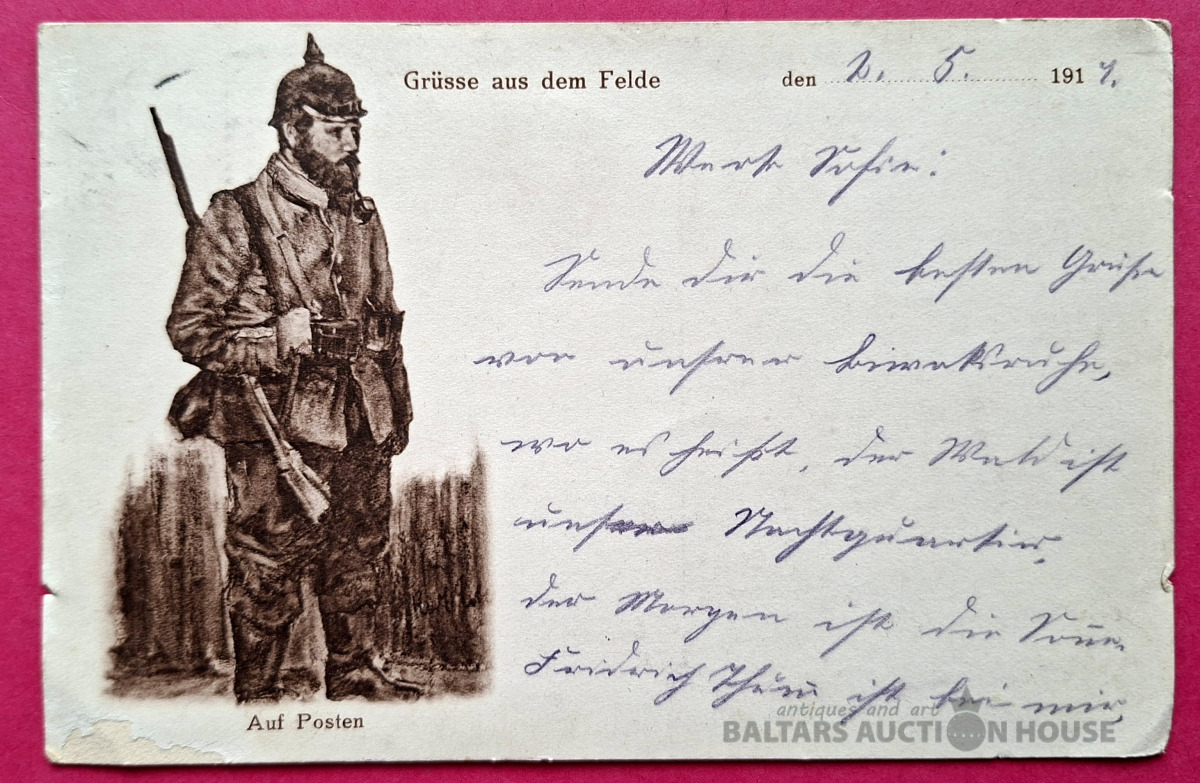 Grüsse aus dem Felde
den 2. 5. 1917.
Werte Sofie:
Sende dir die besten Grüße
von unsrer Biwaksruhe,
wo es heißt, der Wald ist
unser Nachtquartier,
der Morgen ist die Sonne.
Fridrich Thum ist bei mir,
Auf Posten
antiques and art
BALTARS AUCTION HOUSE